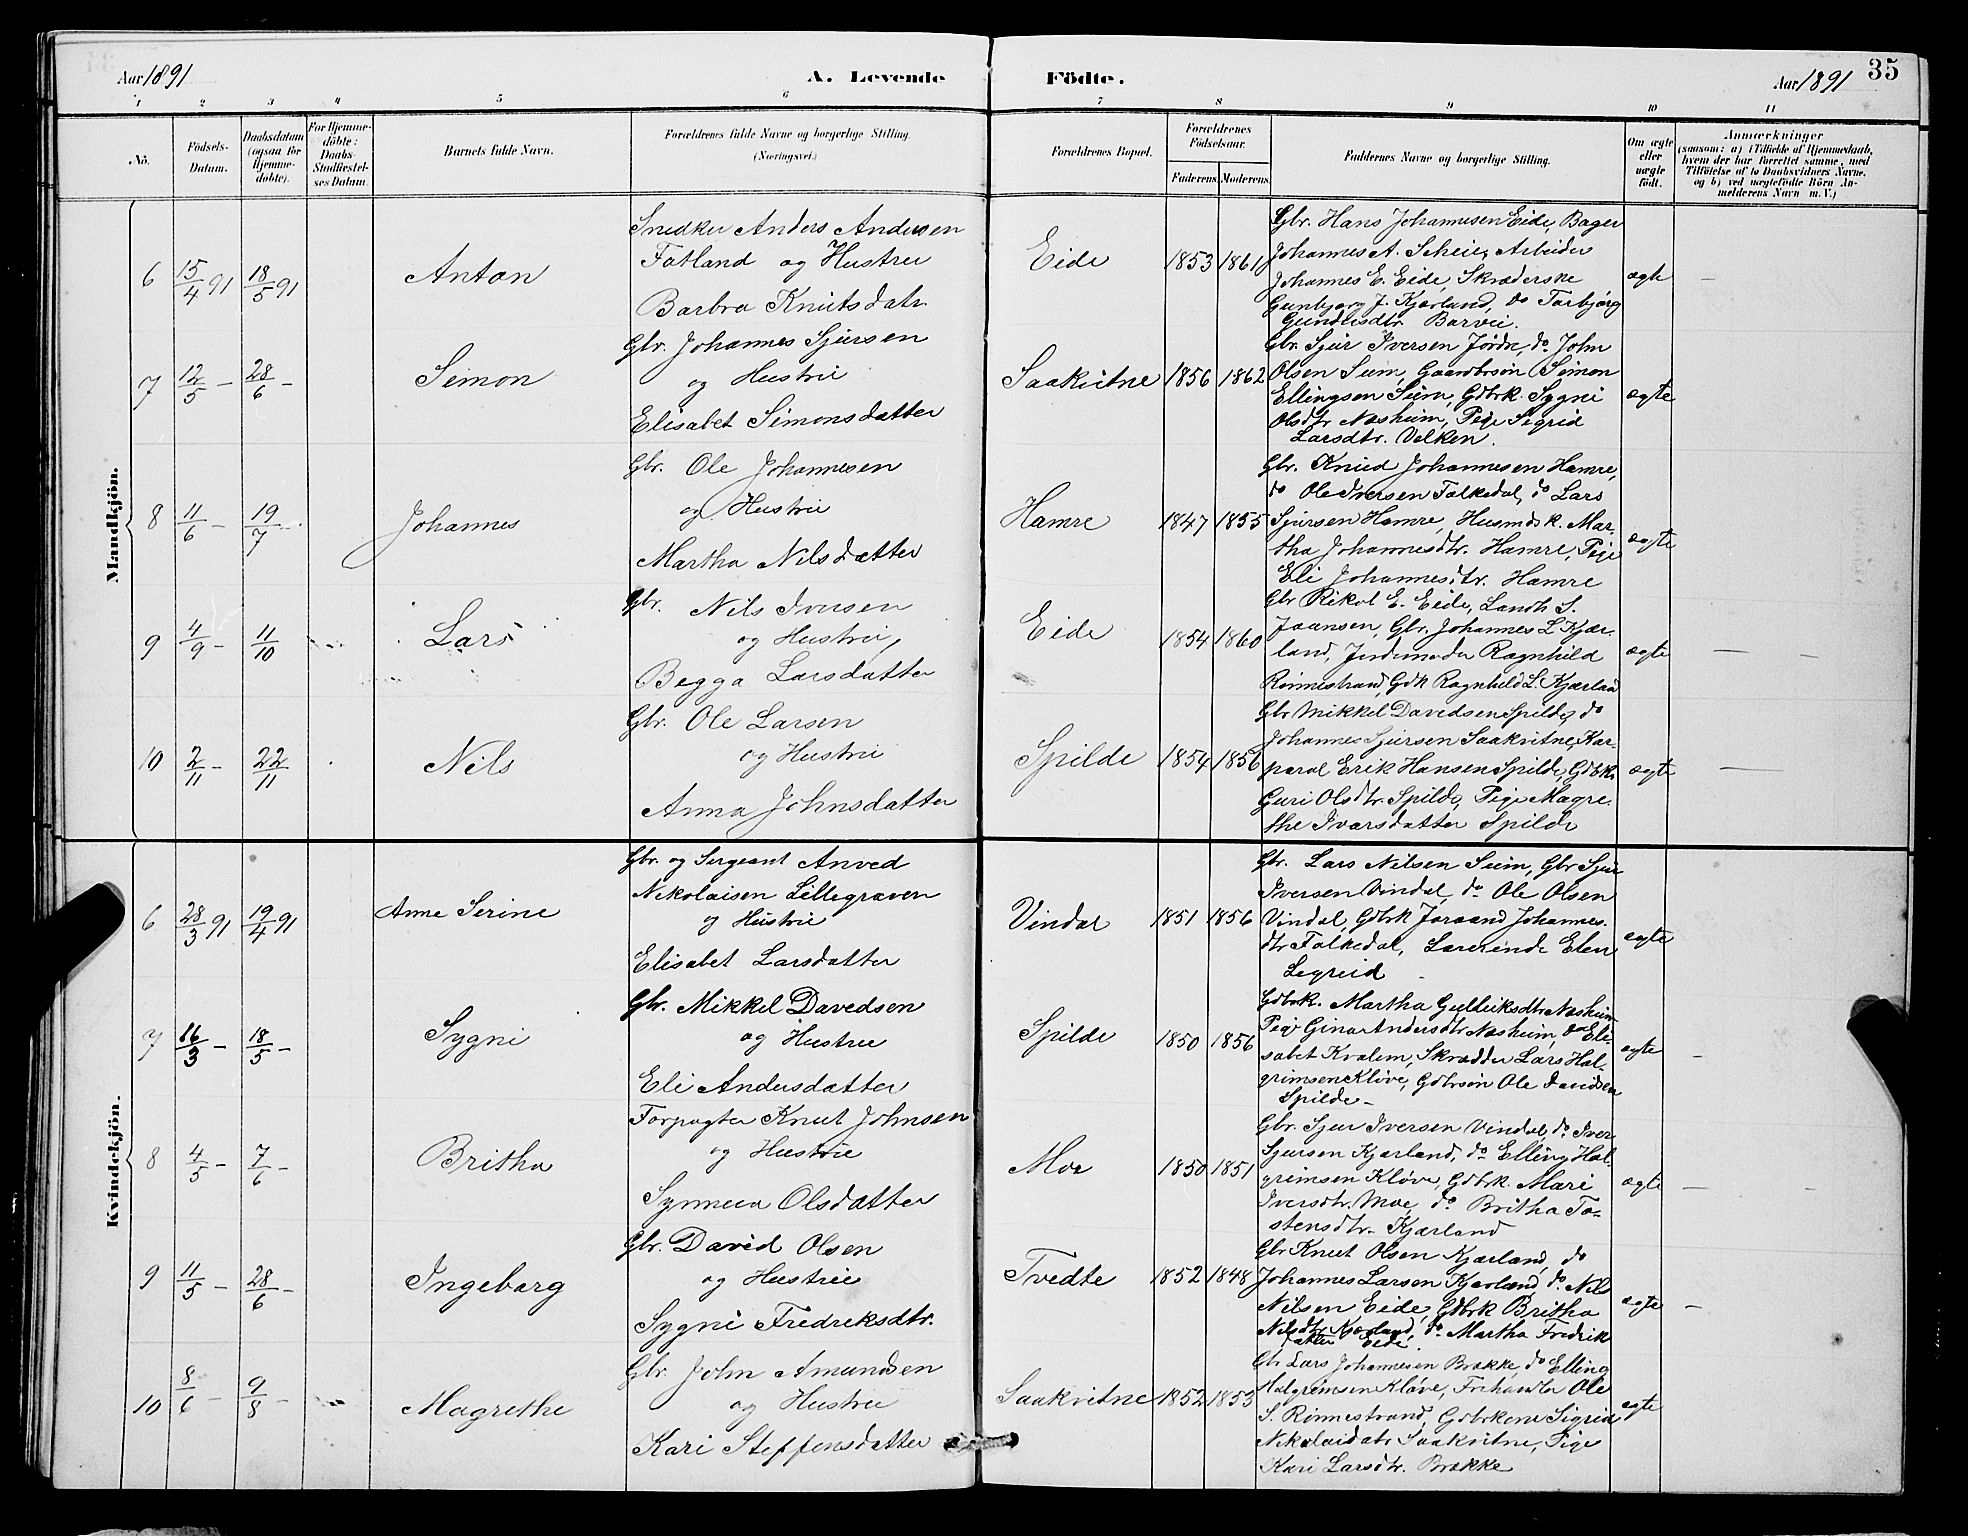 Aar 1891 A. Levende Födte. Aar 1891 35
1 2 3 4 5 6 7 8 9 10 11
No.
Födsels-
Datum.
Daabsdatum
(ogsaa for
Hjemme-
döbte).
For Hjemme-
döbte:
Daabs-
Stadfæstel-
ses Datum.
Barnets fulde Navn.
Forældrenes fulde Navne og borgerlige Stilling.
(Næringsvei.)
Forældrenes Bopæl.
Forældrenes
Födselsaar.
Faderens. Moderens.
Faddernes Navne og borgerlige Stilling.
Om ægte
eller
uægte
födt.
Anmærkninger
(saasom: a) i Tilfælde af Hjemmedaab,
hvem der har forrettet samme, med
Tilföielse af to Daabsvidners Navne,
og b) ved uægtefödte Börn An-
melderens Navn m. V.)
Mandkjön.
6 15/4 91 18/5 91 Anton
Snedker Anders Andersen
Fatland og Hustru
Barbra Knutsdatr.
Eide 1853 1861
Gbr. Hans Johannesen Eide, Bager
Johannes A. Scheie, Arbeider
Johannes E. Eide, Skræderske
Gunbjørg J. Kjærland, do Torbjørg
Barvei.
ægte —
7 12/5 – 28/6 – Simon
Gbr. Johannes Sjursen
og Hustru
Elisabet Simonsdatter
Saakvitne 1856 1862
Gbr. Sjur Iversen Jørdre, do John
Olsen Seim, Gaardbrsøn Simon
Ellingsen Seim, Gdbrk. Sygni
Olsdtr Næsheim, Pige Sigrid
Larsdtr. Velken.
ægte
8 11/6 – 19/7 – Johannes
Gbr. Ole Johannesen
og Hustru
Martha Nilsdatter
Hamre 1847 1855
Gbr. Knud Johannesen Hamre,
do Ole Iversen Folkedal, do Lars
Sjursen Hamre, Husmdsk. Mar-
tha Johannesdtr. Hamre, Pige
Eli Johannesdtr. Hamre
ægte
9 4/9 – 11/10 Lars
Gbr. Nils Iversen
og Hustru,
Begga Larsdatter
Eide 1854 1860
Gbr Rikol E. Eide, Landh S.
Jaansen, Gbr. Johannes L Kjær-
land, Jordemoder Ragnhild
Rønnestrand, Gdk Ragnhild L. Kjærland
ægte —
10 2/11 – 22/11 Nils
Gbr. Ole Larsen
og Hustru
Anna Johnsdatter
Spilde 1854 1856
Gbr Mikkel Davidsen Spilde, do
Johannes Sjursen Saakvitne, Kor-
poral Erik Hansen Spilde, Gdbrk.
Guri Olsdtr. Spilde, Pige Magre-
the Ivarsdatter Spilde
ægte —
Kvindekjön.
6 28/3 91 19/4 91 Anne Serine
Gbr. og Sergeant Anved
Nikolaisen Lillegraven
og Hustru
Elisabet Larsdatter
Vindal 1851 1856
Gbr. Lars Nilsen Seim, Gbr Sjur
Iversen Vindal, do Ole Olsen
Vindal, Gdbrk Joraand Johannes-
dtr Folkedal, Lærerinde Elen
Legreid
ægte
7 16/3 – 18/5 – Sygni
Gbr. Mikkel Davedsen
og Hustru
Eli Andersdatter
Spilde 1850 1856
Gdbrk. Martha Gulleiksdtr Næsheim
Pige Gina Andersdtr Næsheim, do Eli-
sabet Kvalem, Skrædder Lars Hal-
grimsen Kløve, Gdbrsøn Ole Davidsen
Spilde –
ægte –
8 4/5 – 7/6 – Britha
Forpagter Knut Johnsen
og Hustru
Synneva Olsdatter
Moe 1850 1851
Gbr. Sjur Iversen Vindal, do Iver
Sjursen Kjærland, do Elling Hal-
grimsen Kløve, Gdbrk. Mari
Iversdtr. Moe, do Britha To-
stensdtr. Kjærland
ægte —
9 11/5 – 28/6 – Ingeborg
Gbr. David Olsen
og Hustru
Sygni Fredreksdtr.
Tvedte 1852 1848
Gbr Knut Olsen Kjærland, do
Johannes Larsen Kjærland, do. Nils
Nilsen Eide, Gdbrk Britha
Nilsdtr Kjærland, do Martha Fredrik
datter Eide.
ægte –
10 8/6 – 9/8 – Magrethe
Gbr. John Amundsen
og Hustru
Kari Steffensdatter
Saakvitne 1852 1853
Gbr Lars Johannesen Brække, do Elling
Halgrimsen Kløve, Frihandler Ole
S. Rønnestrand, Gdbrkone Sigrid
Nikolaidatr Saakvitne, Pige
Kari Larsdtr. Brække
ægte